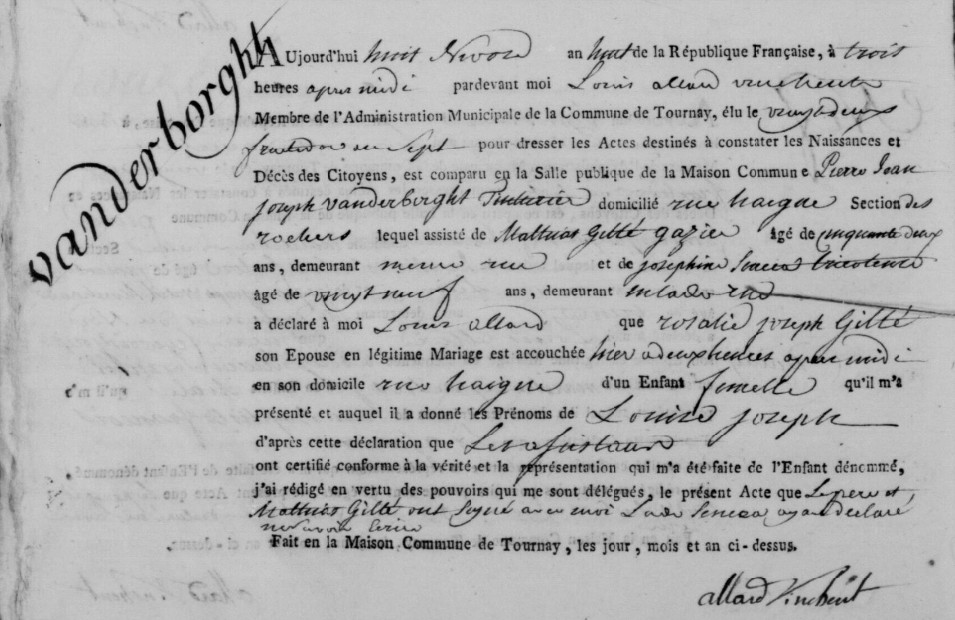 vanderborght
AUjourd'hui huit Nivose an huit de la République Française, à trois
heures apres midi pardevant moi Louis allard vinchent
Membre de l'Administration Municipale de la Commune de Tournay, élu le vingt deux
fructidor an Sept pour dresser les Actes destinés à constater les Naissances et
Décès des Citoyens, est comparu en la Salle publique de la Maison Commune Pierre Jean
joseph vanderborght domicilié rue haigne Section des
rochers lequel assisté de Mathias Gitté gazier âgé de cinquante deux
ans, demeurant meme rue et de josephine tricoteuse
âgé de vingt neuf ans, demeurant en ladite rue
a déclaré à moi Louis allard que rosalie joseph Gitté
son Epouse en légitime Mariage est accouchée hier a deux heures apres midi
en son domicile rue haigne d'un Enfant femelle qu'il m'a
présenté et auquel il a donné les Prénoms de Louise joseph
d'après cette déclaration que Les assistans
ont certifié conforme à la vérité et la représentation qui m'a été faite de l'Enfant dénommé,
j'ai rédigé en vertu des pouvoirs qui me sont délégués, le présent Acte que Le pere et
Mathias Gitté ont signé avec moi Ladte ayant declaré
ne savoir Ecrire
Fait en la Maison Commune de Tournay, les jour, mois et an ci-dessus.
allard Vinchent